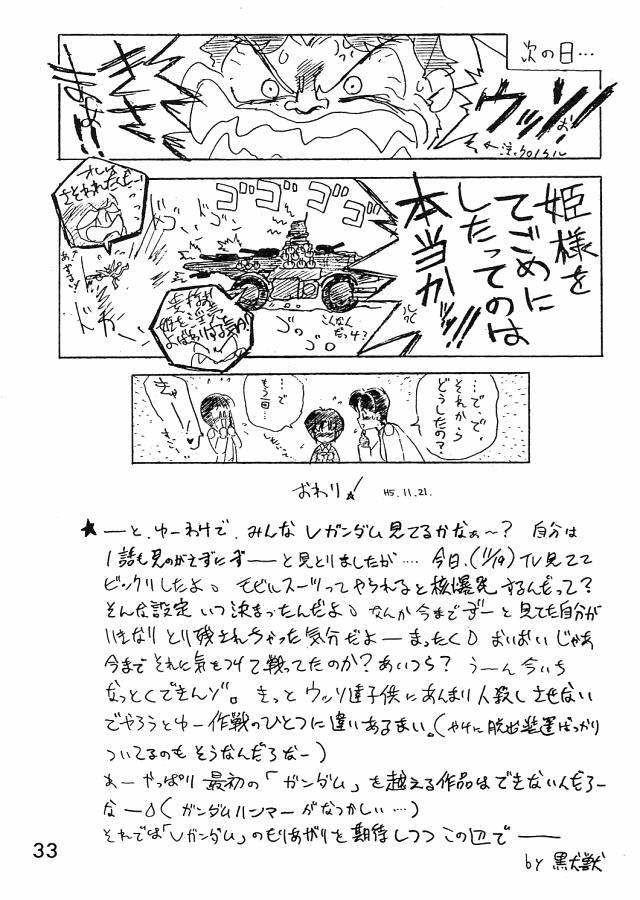 次の日…
ウッソ!!
お
きさまぁ!!
←注.クロノクル
姫様を
てごめに
したってのは
本当かッ!!
オレは
さそわれたんだ…
ゴゴゴゴ
ドドーン
ドカーン
あ?
こんなん
だっけ?
ゴゴロ
…で、で、
それから
どうしたの?
…で
もう一回…
きゃー!♥
おわり!
H5.11.21.
★ ―と.ゆーわけで、みんなVガンダム見てるかなぁ〜? 自分は
1話も見のがえずにずーーと見とりましたが…. 今日、(11/19) TV見てて
ビックリしたよ。 モビルスーツってやられると核爆発するんだって?
そんな設定いつ決まったんだよ。なんか今までずーと見てた自分が
いきなりとり残されちゃった気分だよー まったく。おいおい じゃあ
今までそれに気をつけて戦ってたのか?あいつら? うーん今いち
なっとくできんゾ。 きっとウッソ達子供にあんまり人殺しさせない
でやろうとゆー作戦のひとつに違いあるまい。(やけに脱出装置ばっかり
ついてるのもそうなんだろなー)
あーやっぱり最初の「ガンダム」を越える作品はできないんだろー
なー。(ガンダムハンマーがなつかしい…)
それでは「Vガンダム」のもりあがりを期待しつつこの辺で――
by 黒犬獣
33